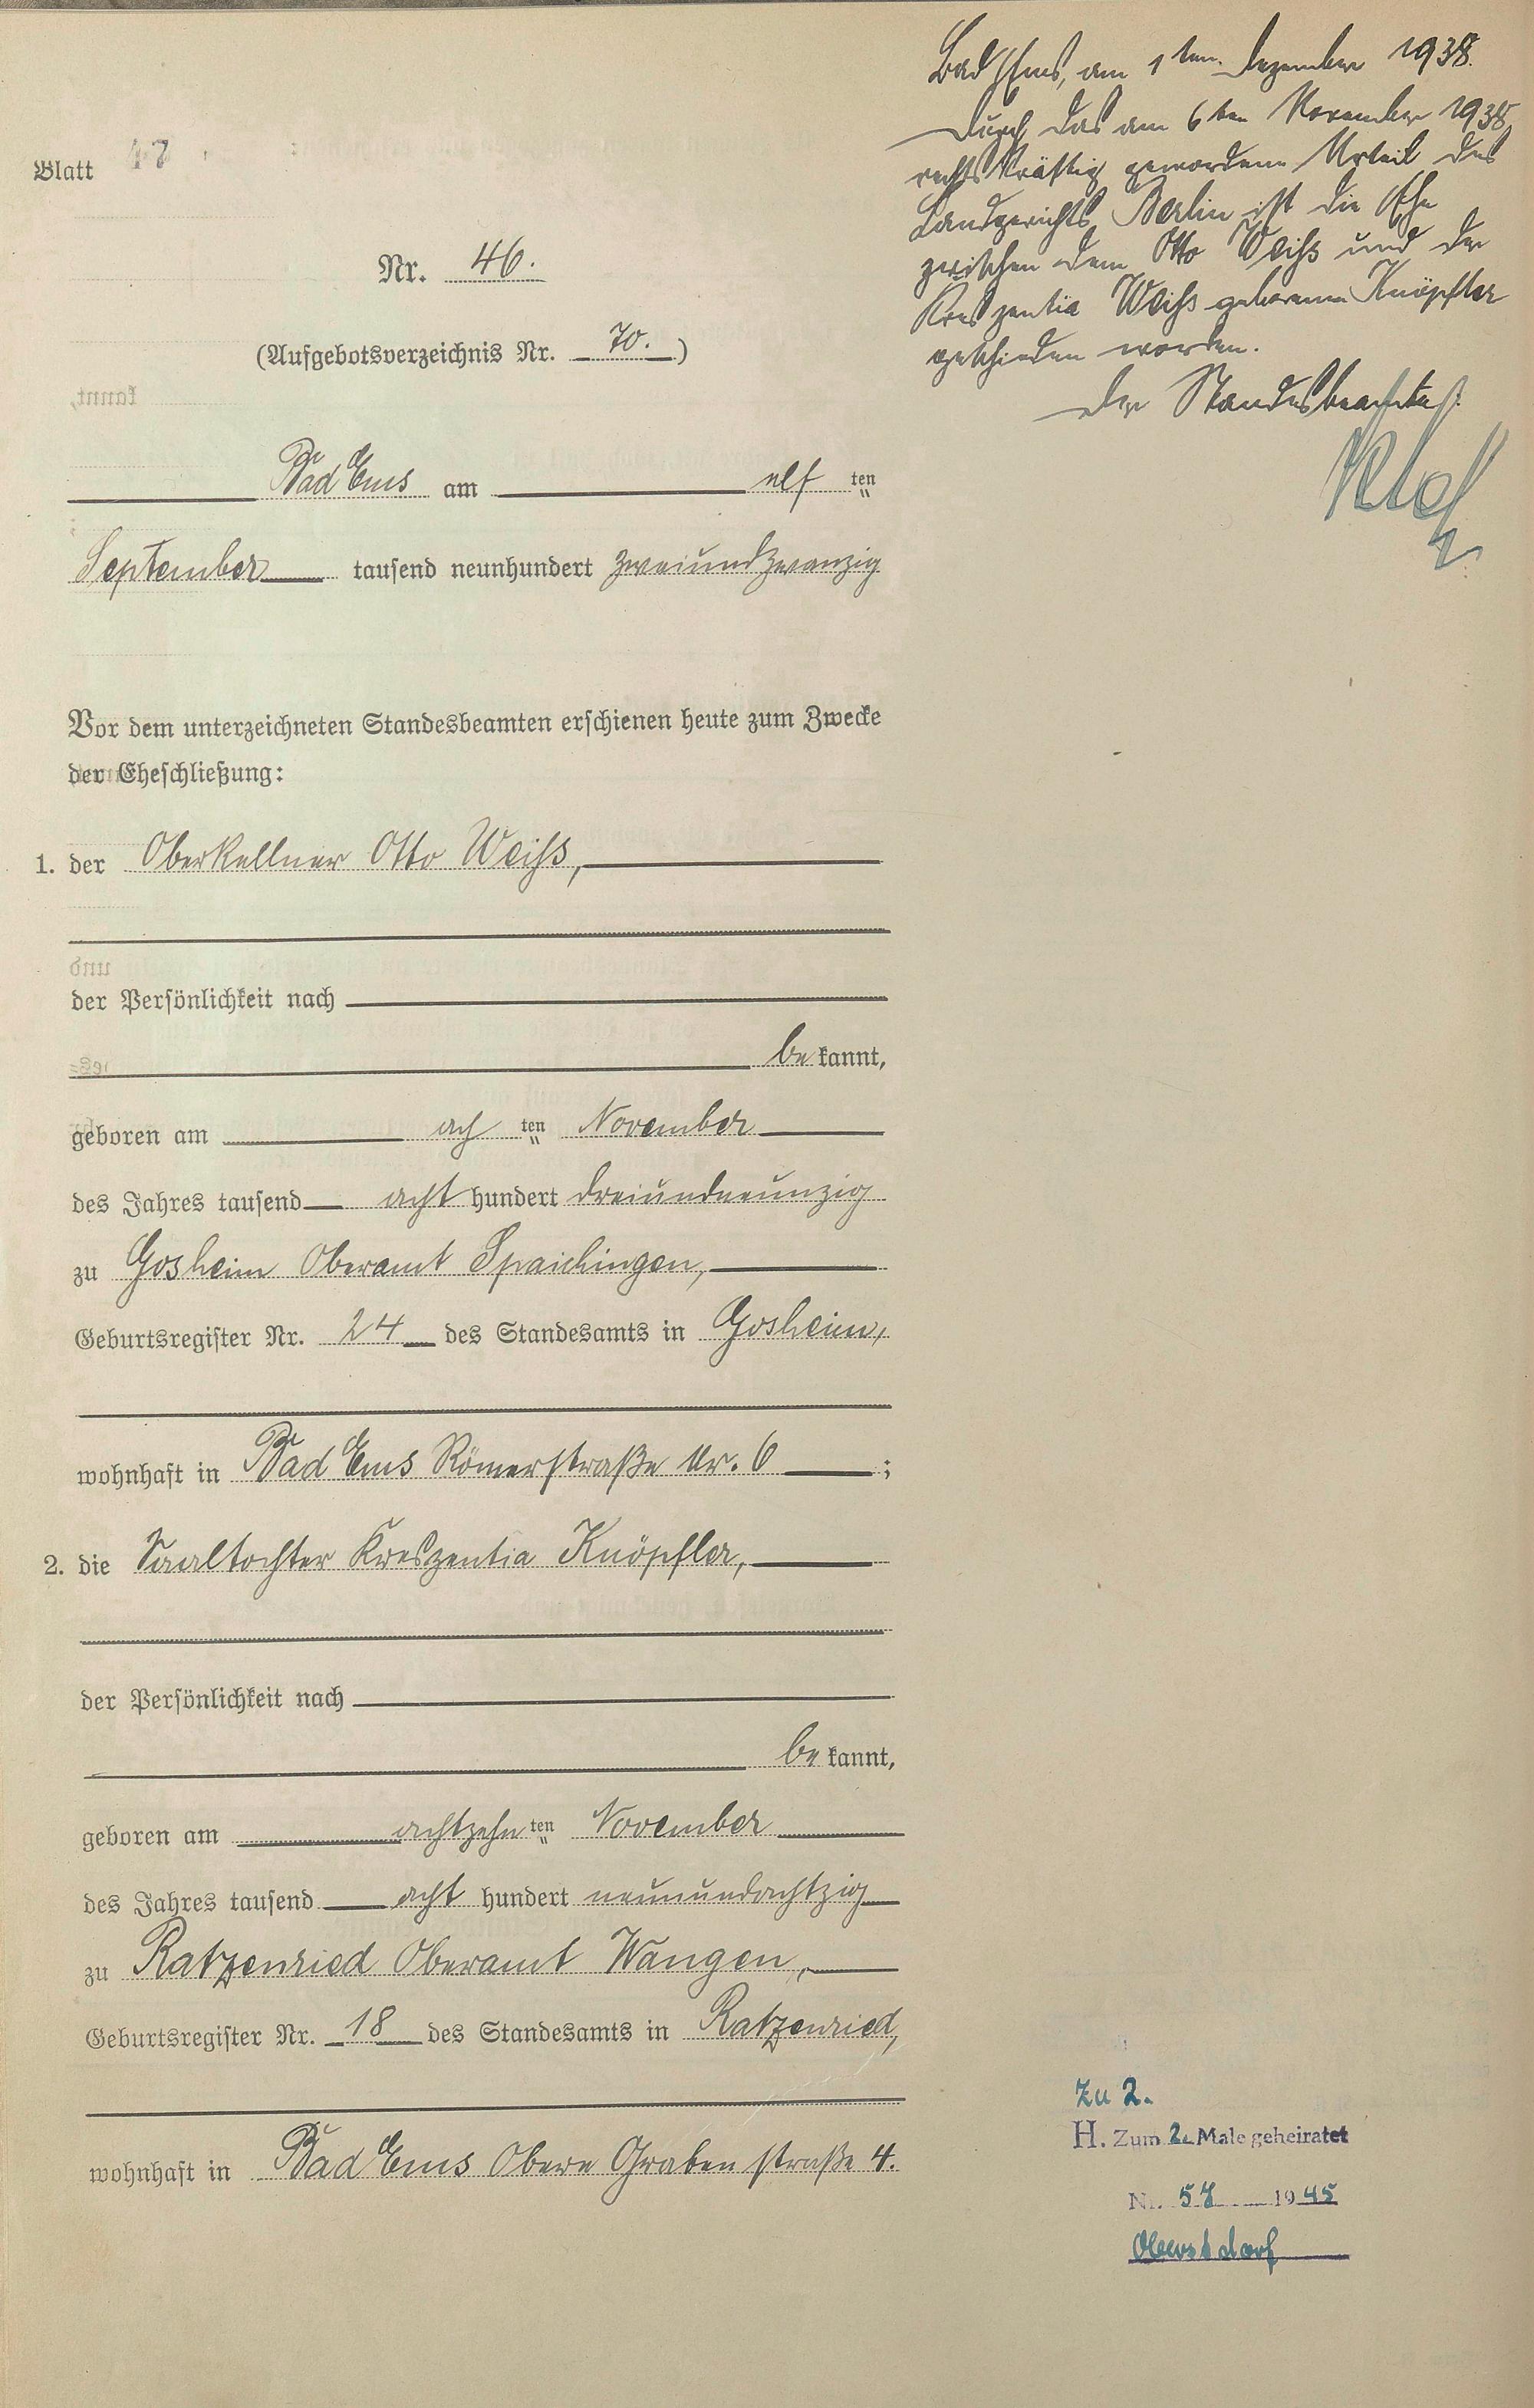 Blatt 47
Nr. 46.
(Aufgebotsverzeichnis Nr. 70.)
Bad Ems am elf ten
September tausend neunhundert zweiundzwanzig
Vor dem unterzeichneten Standesbeamten erschienen heute zum Zwecke
der Eheschließung:
1. der Oberkellner Otto Weiß,
der Persönlichkeit nach
be kannt,
geboren am ach ten November
des Jahres tausend acht hundert dreiundneunzig
zu Gosheim Oberamt Spaichingen,
Geburtsregister Nr. 24 des Standesamts in Gosheim,
wohnhaft in Bad Ems Römerstraße Nr. 6 ;
2. die Saaltochter Kreszentia Knöpfler,
der Persönlichkeit nach
be kannt,
geboren am achtzehn ten November
des Jahres tausend acht hundert neunundachtzig
zu Ratzenried Oberamt Wangen,
Geburtsregister Nr. 18 des Standesamts in Ratzenried,
wohnhaft in Bad Ems Obere Grabenstraße 4.
Bad Ems, am 1ten Dezember 1938.
Durch das am 6ten November 1938
rechtskräftig gewordene Urteil des
Landgerichts Berlin ist die Ehe
zwischen dem Otto Weiß und der
Kreszentia Weiß geborenen Knöpfler
geschieden worden.
Der Standesbeamte
Zu 2.
H. Zum 2. Male geheiratet
Nr. 57 1945
Oberstdorf